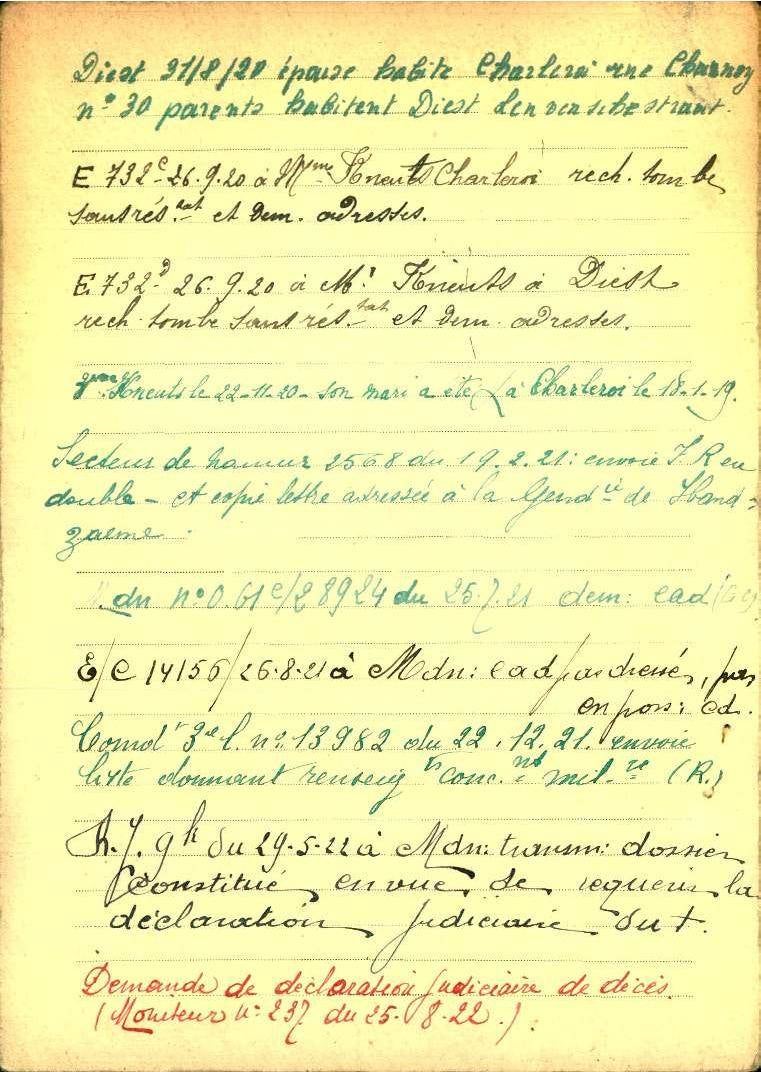 Diest 31/8/20 épouse habite Charleroi rue Charnoy
n° 30 parents habitent Diest
E 732c 26.9.20 à Mme Kneuts Charleroi rech. tombe
sans rés.tat et dem. adresses.
E.732d 26.9.20 à Mr Kneuts à Diest
rech. tombe sans rés.tat et dem. adresses.
Kneuts le 22-11-20 - son mari a été à Charleroi le 18-1-19.
Secteur de Namur 2568 du 19.2.21: envoie J.R en
double - et copie lettre adressée à la Gendie de Hand-
zaeme.
Mdn n° 0.61c/28924 du 25.7.21 dem: cad
E/C 14156/26-8-21 à Mdn: cad pas dressés, pas
en poss: cd.
Comdt 3e l. n° 13982 du 22.12.21. envoie
liste donnant renseigts conc.nt mil.re (R.)
R.J. 9k du 29-5-22 à Mdn: transm: dossier
constitué en vue de requérir la
déclaration judiciaire du †.
Demande de déclaration judiciaire de décès.
(Moniteur n° 237 du 25-8-22.)